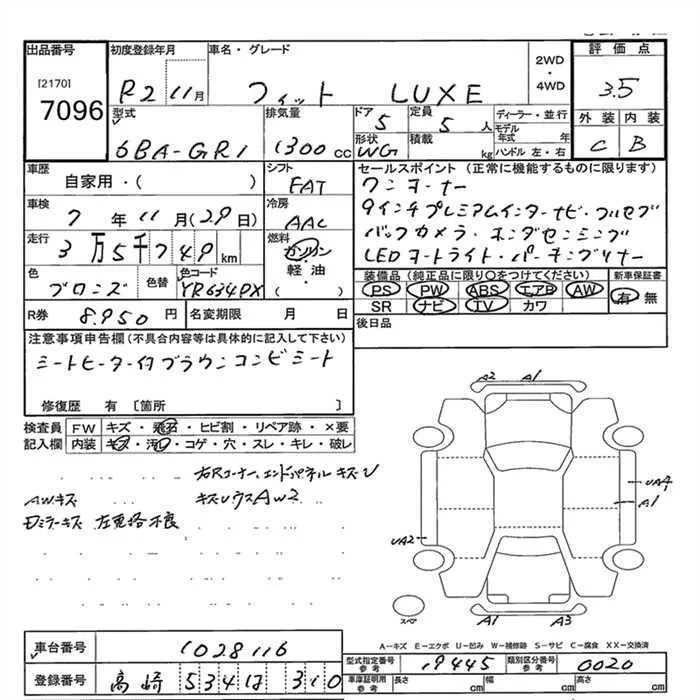 出品番号
[2170]
7096
初度登録年月
R2 11月
車名・グレード
フィット LUXE
2WD
・
4WD
評価点
3.5
外装 内装
C B
型式
6BA-GR1
排気量
1300 cc
ドア
5
定員
5 人
形状
WG
積載
kg
ディーラー・並行
モデル年式 年
ハンドル 左・右
車歴
自家用・( )
シフト
FAT
車検
7年11月(29日)
冷房
AAC
走行
3万5千749km
燃料
ガソリン
軽油
( )
色
ブロンズ
色替
色コード
YR634PX
R券
8.950円
名変期限 月 日
セールスポイント(正常に機能するものに限ります)
ワンオーナー
9インチプレミアムインターナビ・フルセグ
バックカメラ・ホンダセンシング
LEDヘッドライト・パーキングソナー
装備品(純正品に限り○をつけてください)
PS PW ABS エアB AW
SR ナビ TV カワ
新車保証書
有 無
後日品
注意事項申告欄(不具合内容等は具体的に記入して下さい)
シートヒーター付ブラウンコンビシート
修復歴 有 [箇所 ]
検査員
記入欄
FW キズ・飛石・ヒビ割・リペア跡・×要
内装 キズ・汚・コゲ・穴・スレ・キレ・破レ
右Rコーナー、エンドパネル キズU
AWキズ
キズUウスAW2
Dミラーキズ
A2 A1
UA4
A1
UA2
スペ
A1 A3
A-キズ E-エクボ U-凹み W-補修跡 S-サビ C-腐食 XX-交換済
車台番号
1028116
登録番号
高崎 534 は 310
型式指定番号
参考
19445
類別区分番号
参考
0020
車庫証明用
参考
長さ cm
幅 cm
高さ cm